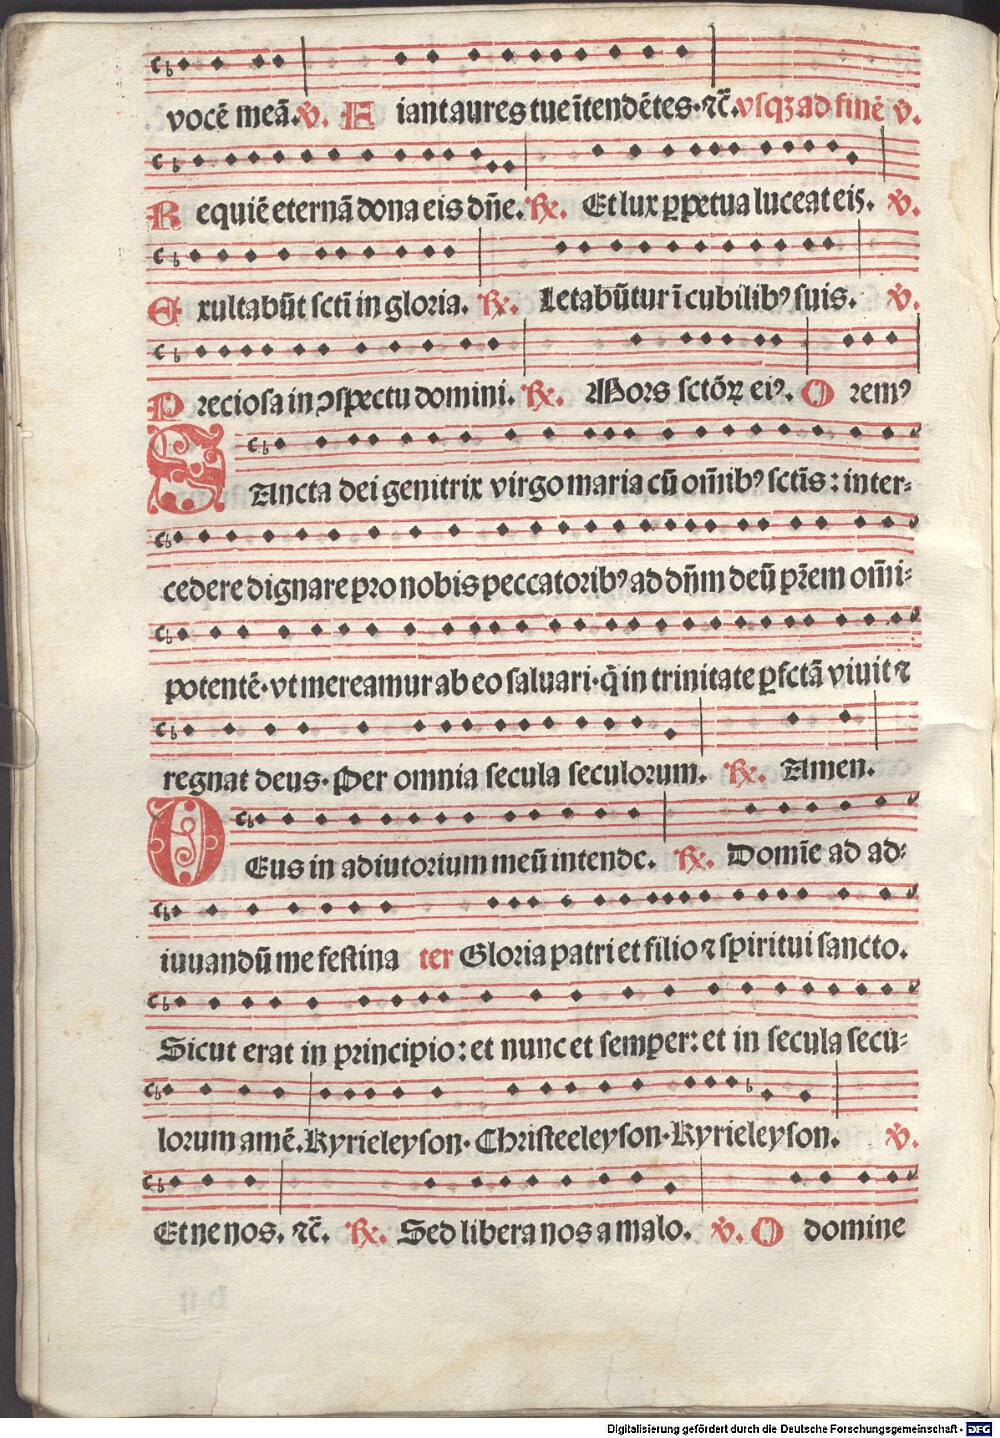 vocē meā. ꝟ. Fiant aures tue ītendētes. ⁊c̄. vsqꝫ ad finē ꝟ.
Requiē eternā dona eis dn̄e. ℞. Et lux ꝑpetua luceat eis. ꝟ.
Exultabūt sctī in gloria. ℞. Letabūtur ī cubilibꝰ suis. ꝟ.
Preciosa in ꝯspectu domini. ℞. Mors sctōꝝ eiꝰ. Oremꝰ
SAncta dei genitrix virgo maria cū om̄ibꝰ sctīs: inter-
cedere dignare pro nobis peccatoribꝰ ad dn̄m deū pr̄em om̄i-
potentē. vt mereamur ab eo saluari. q̄ in trinitate ꝑfctā viuit ⁊
regnat deus. Per omnia secula seculorum. ℞. Amen.
DEus in adiutorium meū intende. ℞. Domīe ad ad-
iuuandū me festina ter Gloria patri et filio ⁊ spiritui sancto.
Sicut erat in principio: et nunc et semper: et in secula secu-
lorum amē. Kyrieleyson. Christeeleyson. Kyrieleyson. ꝟ.
Et ne nos. ⁊c̄. ℞. Sed libera nos a malo. ꝟ. O domine
Digitalisierung gefördert durch die Deutsche Forschungsgemeinschaft - DFG